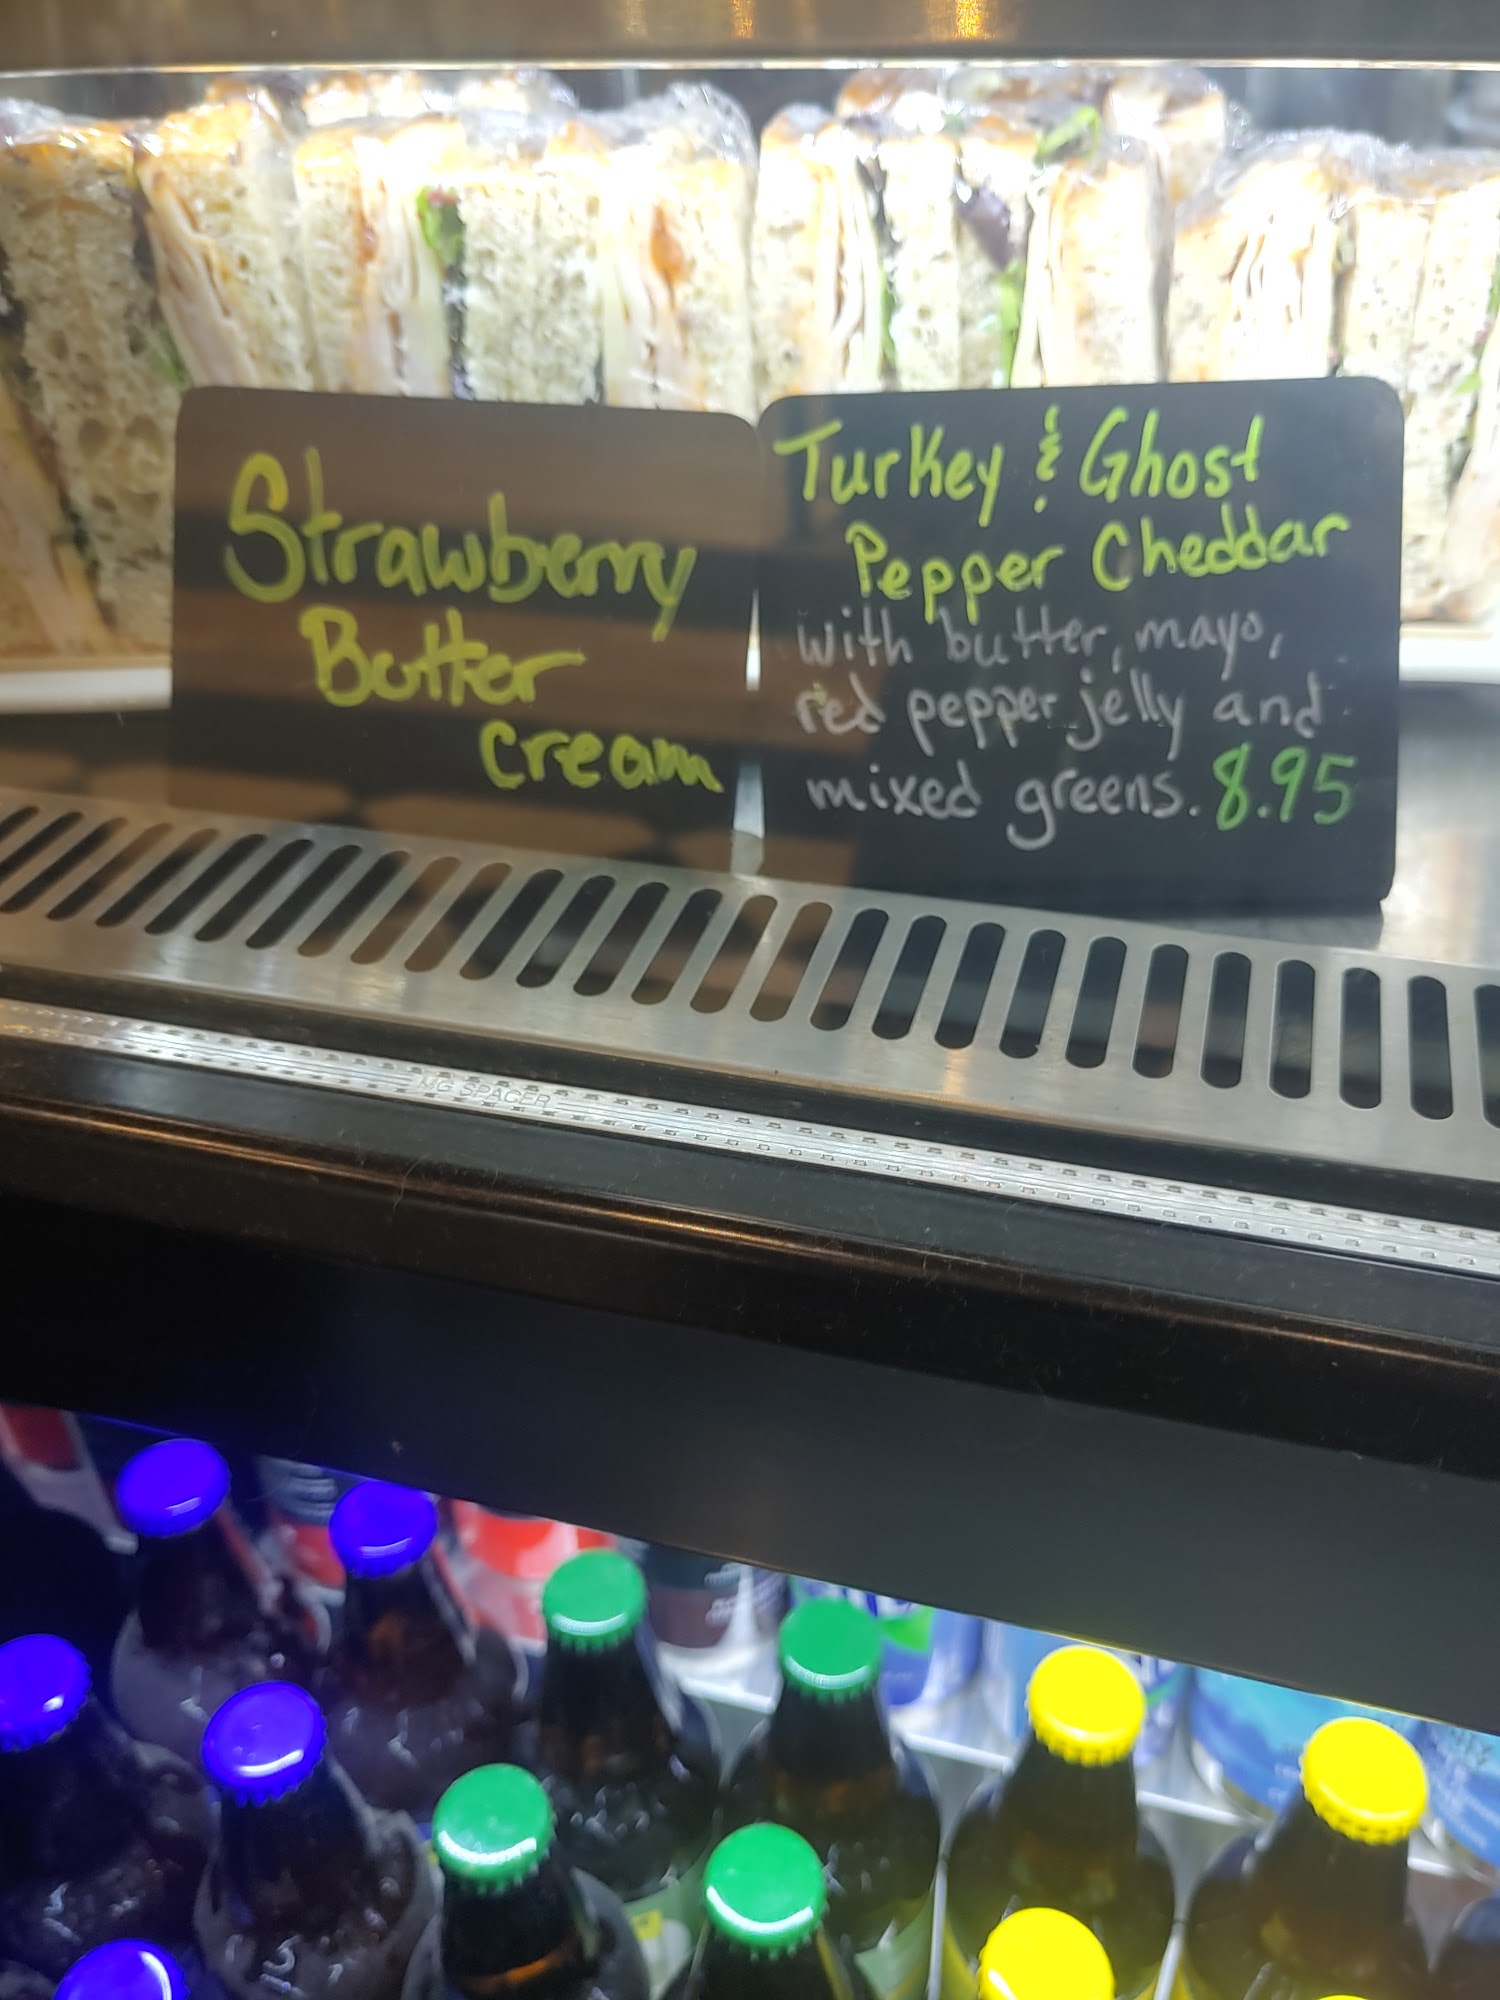 Strawberry
Butter
cream
Turkey & Ghost
Pepper Cheddar
with butter, mayo,
red pepper jelly and
mixed greens. 8.95
MG SPACER